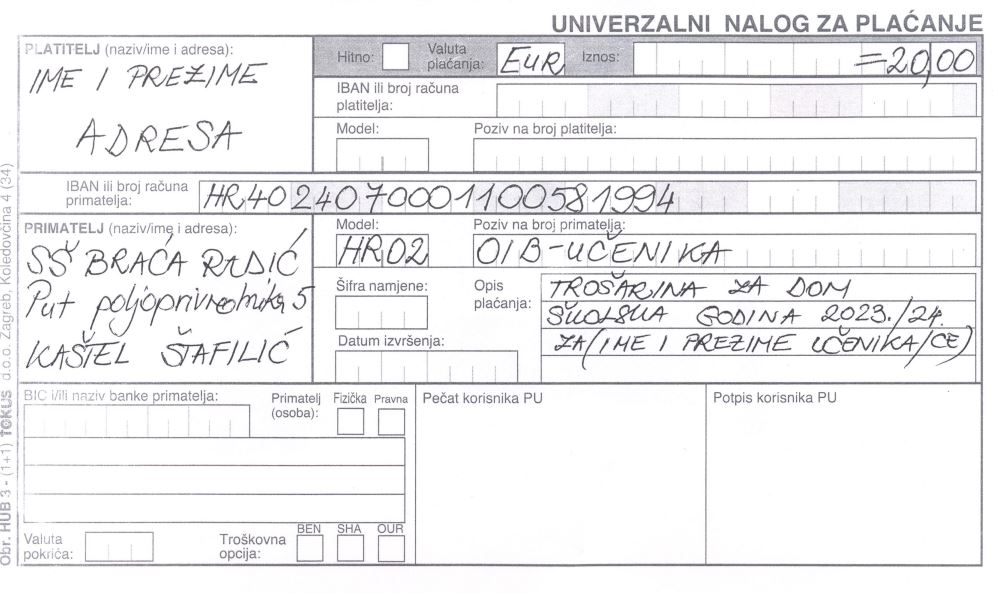 UNIVERZALNI NALOG ZA PLAĆANJE
PLATITELJ (naziv/ime i adresa):
IME I PREZIME
ADRESA
Hitno:
Valuta plaćanja: EUR
Iznos: =20,00
IBAN ili broj računa platitelja:
Model:
Poziv na broj platitelja:
IBAN ili broj računa primatelja: HR4024070001100581994
PRIMATELJ (naziv/ime i adresa):
SŠ BRAĆA RADIĆ
Put poljoprivrednika 5
KAŠTEL ŠTAFILIĆ
Model:
HR02
Poziv na broj primatelja:
OIB-UČENIKA
Šifra namjene:
Datum izvršenja:
Opis plaćanja:
TROŠARINA ZA DOM
ŠKOLSKA GODINA 2023./24.
ZA (IME I PREZIME UČENIKA/CE)
BIC i/ili naziv banke primatelja:
Primatelj (osoba):
Fizička
Pravna
Valuta pokrića:
Troškovna opcija:
BEN
SHA
OUR
Pečat korisnika PU
Potpis korisnika PU
Obr. HUB 3 - (1+1) TOKUS d.o.o. Zagreb, Koledovčina 4 (34)